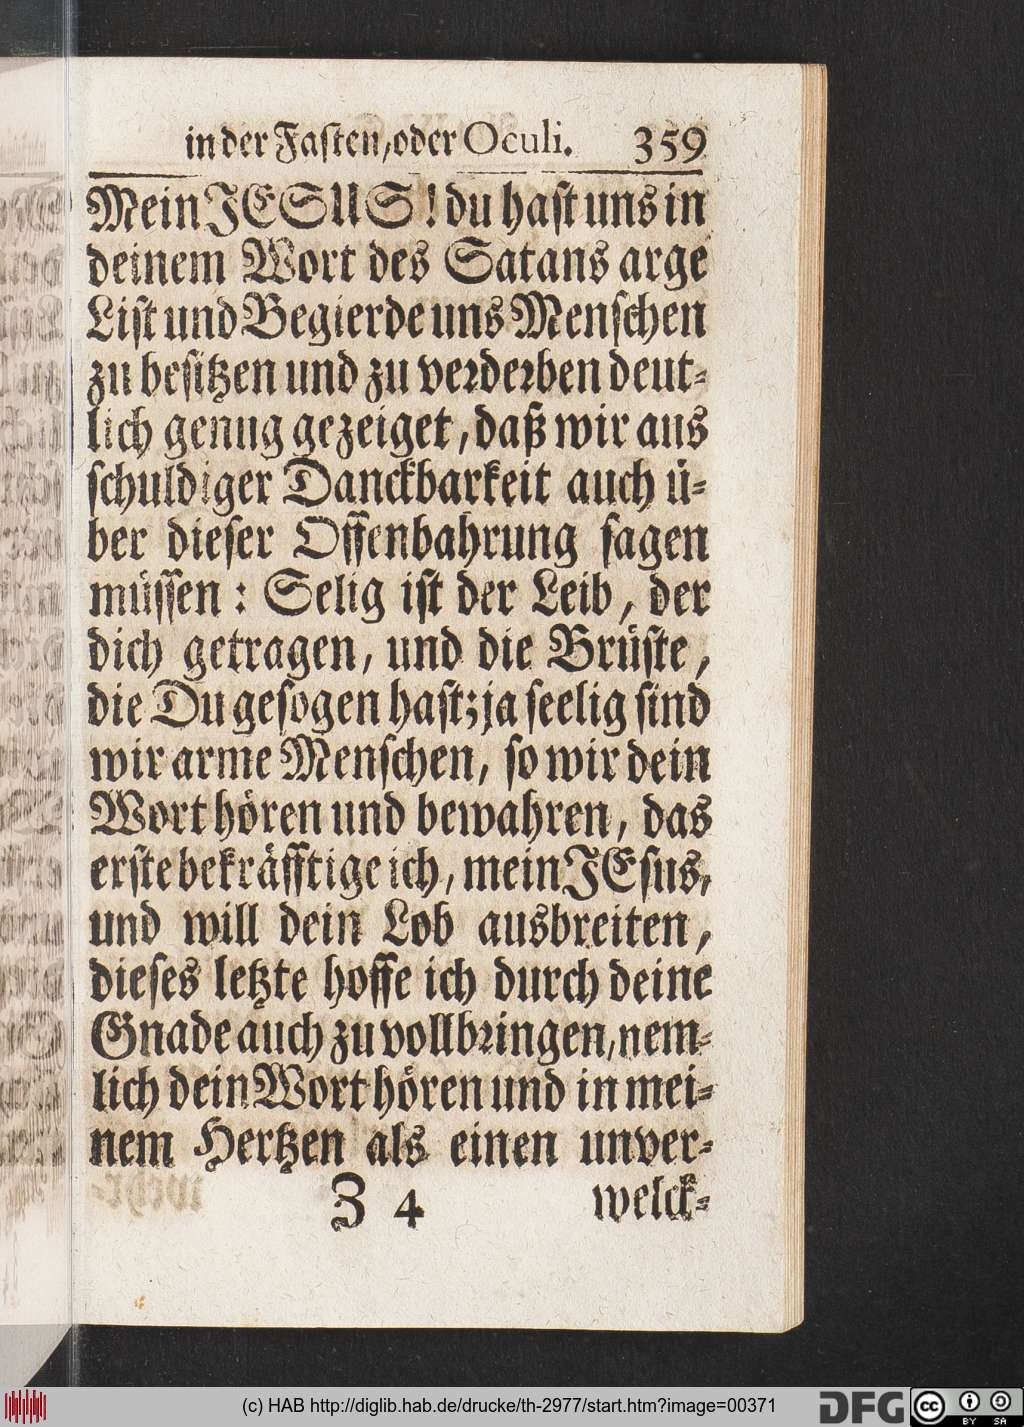 in der Fasten, oder Oculi. 359
Mein JESUS! du hast uns in
deinem Wort des Satans arge
List und Begierde uns Menschen
zu besitzen und zu verderben deut-
lich genug gezeiget, daß wir aus
schuldiger Danckbarkeit auch ü-
ber dieser Offenbahrung sagen
müssen: Selig ist der Leib, der
dich getragen, und die Brüste,
die Du gesogen hast; ja seelig sind
wir arme Menschen, so wir dein
Wort hören und bewahren, das
erste bekräfftige ich, mein JEsus,
und will dein Lob ausbreiten,
dieses letzte hoffe ich durch deine
Gnade auch zu vollbringen, nem-
lich dein Wort hören und in mei-
nem Hertzen als einen unver-
Z 4 welck-
(c) HAB http://diglib.hab.de/drucke/th-2977/start.htm?image=00371
DFG
cc BY SA